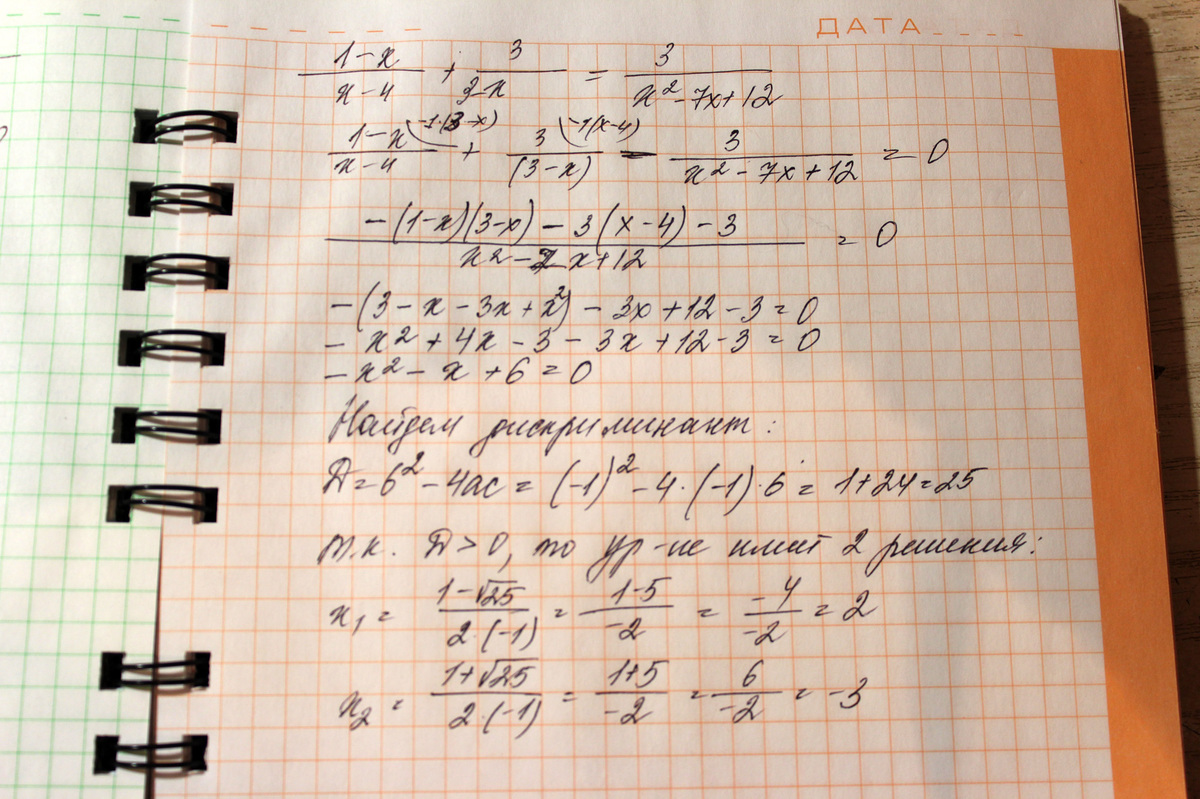 ДАТА
(1-x)/(x-4) + 3/(3-x) = 3/(x²-7x+12)
(1-x)/(x-4) -1·(3-x) + 3/(3-x) -1(x-4) - 3/(x²-7x+12) = 0
(-(1-x)(3-x) - 3(x-4) - 3)/(x²-7x+12) = 0
-(3-x-3x+x²) - 3x+12-3=0
- x²+4x-3-3x+12-3=0
-x²-x+6=0
Найдем дискриминант:
D=b²-4ac = (-1)²-4·(-1)·6 = 1+24=25
т.к. D>0, то ур-ие имеет 2 решения:
x₁ = (1-√25)/(2·(-1)) = (1-5)/(-2) = (-4)/(-2) = 2
x₂ = (1+√25)/(2·(-1)) = (1+5)/(-2) = 6/(-2) = -3